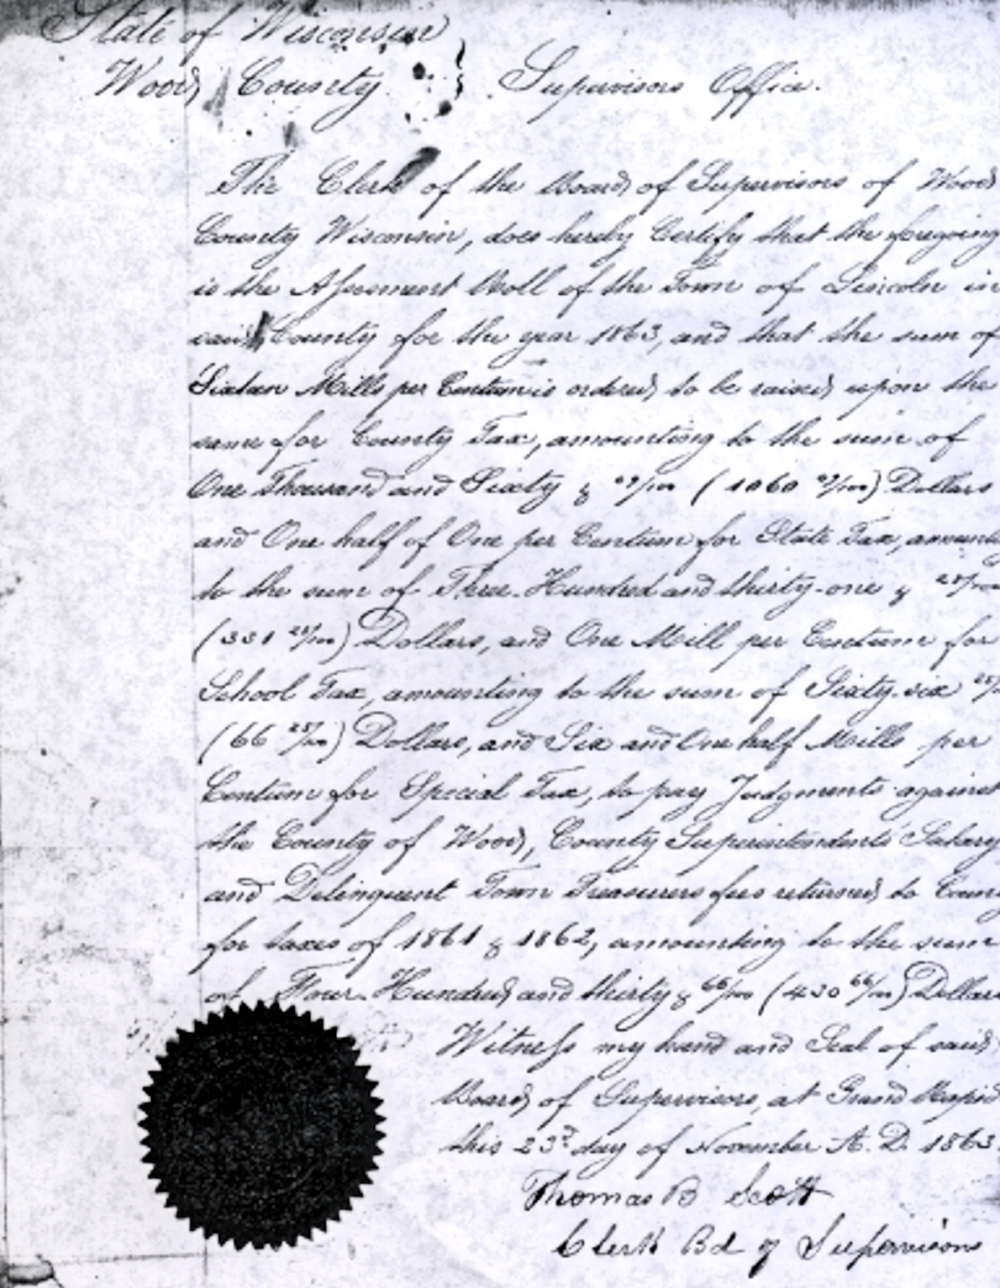 State of Wisconsin
Wood County } Supervisors Office.
The Clerk of the Board of Supervisors of Wood
County Wisconsin, does hereby Certify that the foregoing
is the Assessment Roll of the Town of Lincoln in
said County for the year 1863, and that the sum of
Sixteen Mills per Centum is ordered to be raised upon the
same for County Tax, amounting to the sum of
One Thousand and Sixty & /100 (1060 /100) Dollars
and One half of One per Centum for State Tax, amountg
to the sum of Three Hundred and thirty-one & 25/100
(331 25/100) Dollars, and One Mill per Centum for
School Tax, amounting to the sum of Sixty-six 25/
(66 25/100) Dollars, and Six and One half Mills per
Centum for Special Tax, to pay Judgments against
the County of Wood, County Superintendents Salary
and Delinquent Town Treasurers fees returned to Coun
for taxes of 1861 & 1862, amounting to the sum
of Four Hundred and thirty & 66/100 (430 66/100) Dollars
Witness my hand and Seal of said
Board of Supervisors, at Grand Rapid
this 23d day of November A. D. 1863
Thomas B Scott
Clerk Bd of Supervisors